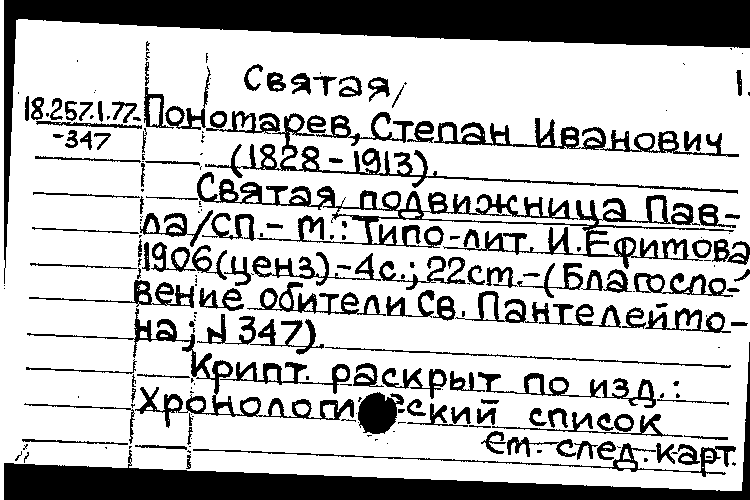 Святая/ 1.
18.257.1.77-347 Пономарев, Степан Иванович
(1828-1913).
Святая, подвижница Пав-
ла/СП.- М.: Типо-лит. И.Ефимова
1906(ценз).-4с.; 22см.-(Благосло-
вение обители Св. Пантелеймо-
на; N 347).
Крипт. раскрыт по изд.:
Хронологический список
см. след. карт.